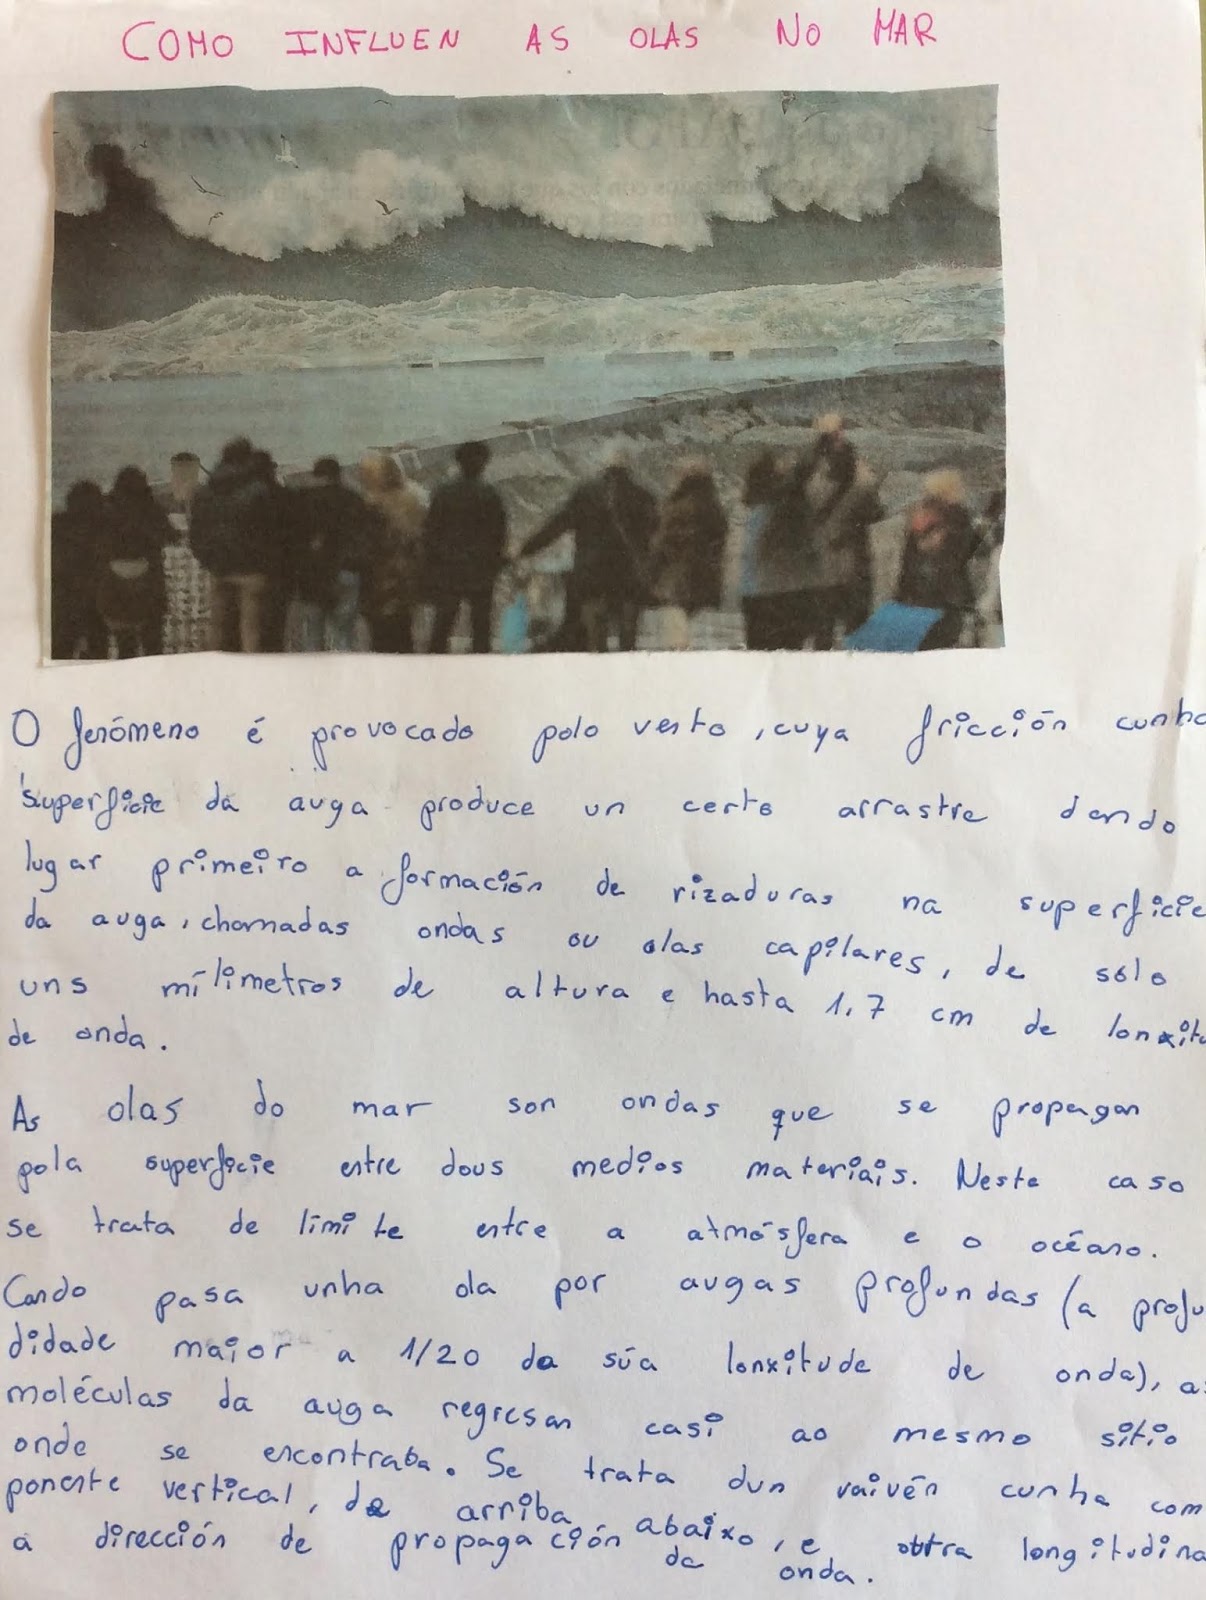 COMO INFLUEN AS OLAS NO MAR
O fenómeno é provocado polo vento, cuya fricción cunha
superficie da auga produce un certo arrastre dando
lugar primeiro a formación de rizaduras na superficie
da auga, chamadas ondas ou olas capilares, de sólo
uns milimetros de altura e hasta 1,7 cm de lonxitu
de onda.
As olas do mar son ondas que se propagan
pola superficie entre dous medios materiais. Neste caso
se trata de limite entre a atmósfera e o océano.
Cando pasa unha ola por augas profundas (a profu
didade maior a 1/20 da súa lonxitude de onda), as
moléculas da auga regresan casi ao mesmo sitio
onde se encontraba. Se trata dun vaivén cunha com
ponente vertical, de arriba abaixo, e outra longitudina
a dirección de propagación da onda.